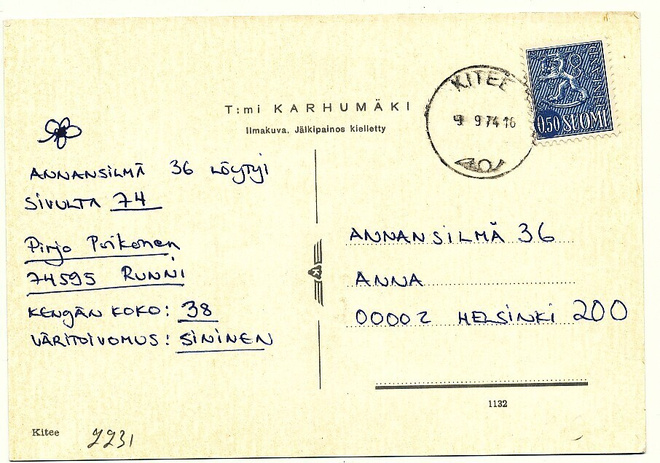 T:mi KARHUMÄKI
Ilmakuva. Jälkipainos kielletty
KITEE
9. 9.74-16
0,50 SUOMI
ANNANSILMÄ 36 LÖYTYI
SIVULTA 74
Pirjo Poikonen
74595 RUNNI
KENGÄN KOKO: 38
VÄRITOIVOMUS: SININEN
ANNANSILMÄ 36
ANNA
00002 HELSINKI 200
1132
Kitee
2231